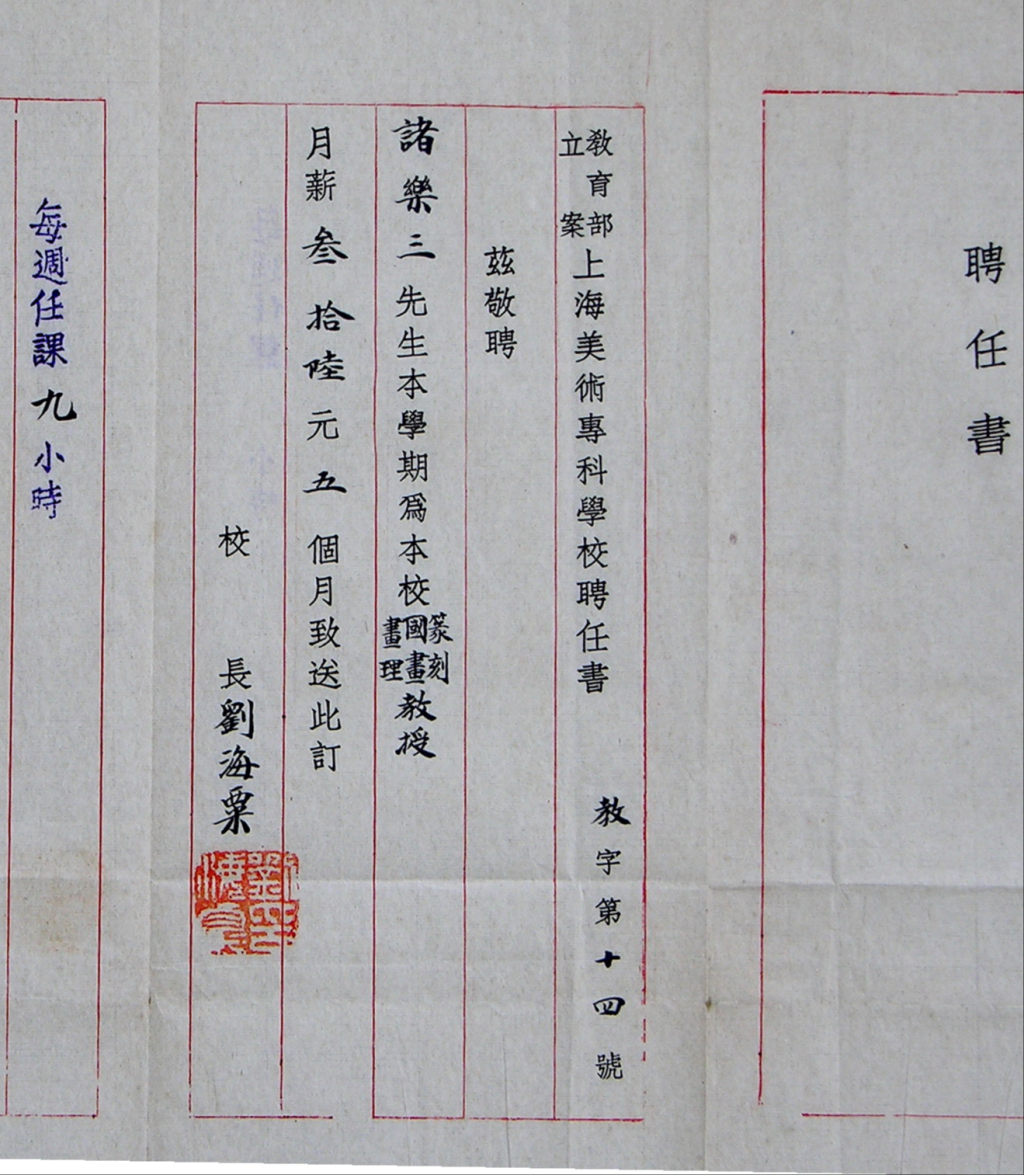 聘任書
教育部立案上海美術專科學校聘任書
教字第十四號
茲敬聘
諸樂三先生本學期爲本校篆刻國畫畫理教授
月薪叁拾陸元五個月致送此訂
校長劉海粟
每週任課九小時